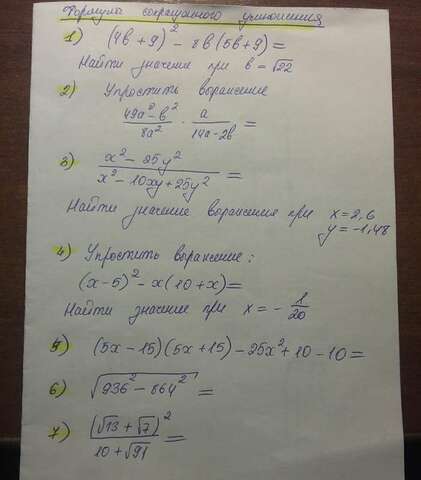 Формула сокращенного умножения
1) (4в+9)² - 8в(5в+9)=
Найти значение при в = √22
2) Упростить выражение
(49а²-в²)/(8а²) · а/(14а-2в) =
3) (x²-25y²)/(x²-10xy+25y²) =
Найти значение выражения при x=2,6
y=-1,48
4) Упростить выражение:
(x-5)² - x(10+x)=
Найти значение при x = -1/20
5) (5x-15)(5x+15)-25x²+10-10=
6) √(936²-864²) =
7) (√13+√7)²/(10+√91) =